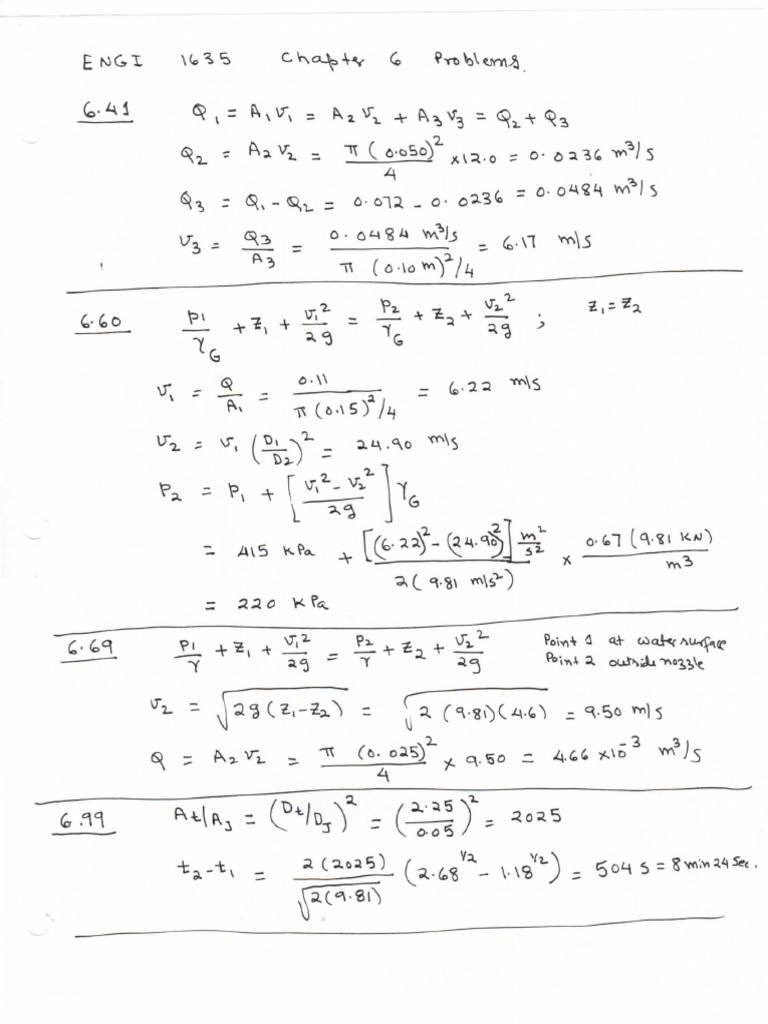 ENGI 1635 Chapter 6 Problems.
6.41 Q₁ = A₁v₁ = A₂v₂ + A₃v₃ = Q₂ + Q₃
Q₂ = A₂v₂ = π(0.050)²/4 × 12.0 = 0.0236 m³/s
Q₃ = Q₁ - Q₂ = 0.072 - 0.0236 = 0.0484 m³/s
v₃ = Q₃/A₃ = 0.0484 m³/s / π(0.10 m)²/4 = 6.17 m/s
6.60 P₁/γ_G + Z₁ + v₁²/2g = P₂/γ_G + Z₂ + v₂²/2g ; Z₁ = Z₂
v₁ = Q/A₁ = 0.11 / π(0.15)²/4 = 6.22 m/s
v₂ = v₁ (D₁/D₂)² = 24.90 m/s
P₂ = P₁ + [v₁² - v₂² / 2g] γ_G
= 415 kPa + [(6.22)² - (24.90)²] m²/s² / 2(9.81 m/s²) × 0.67(9.81 KN)/m³
= 220 kPa
6.69 P₁/γ + Z₁ + v₁²/2g = P₂/γ + Z₂ + v₂²/2g Point 1 at water surface
Point 2 outside nozzle
v₂ = √2g(Z₁-Z₂) = √2(9.81)(4.6) = 9.50 m/s
Q = A₂v₂ = π(0.025)²/4 × 9.50 = 4.66 × 10⁻³ m³/s
6.99 At/AJ = (Dt/DJ)² = (2.25/0.05)² = 2025
t₂-t₁ = 2(2025)/√2(9.81) (2.68^1/2 - 1.18^1/2) = 504 s = 8 min 24 Sec.